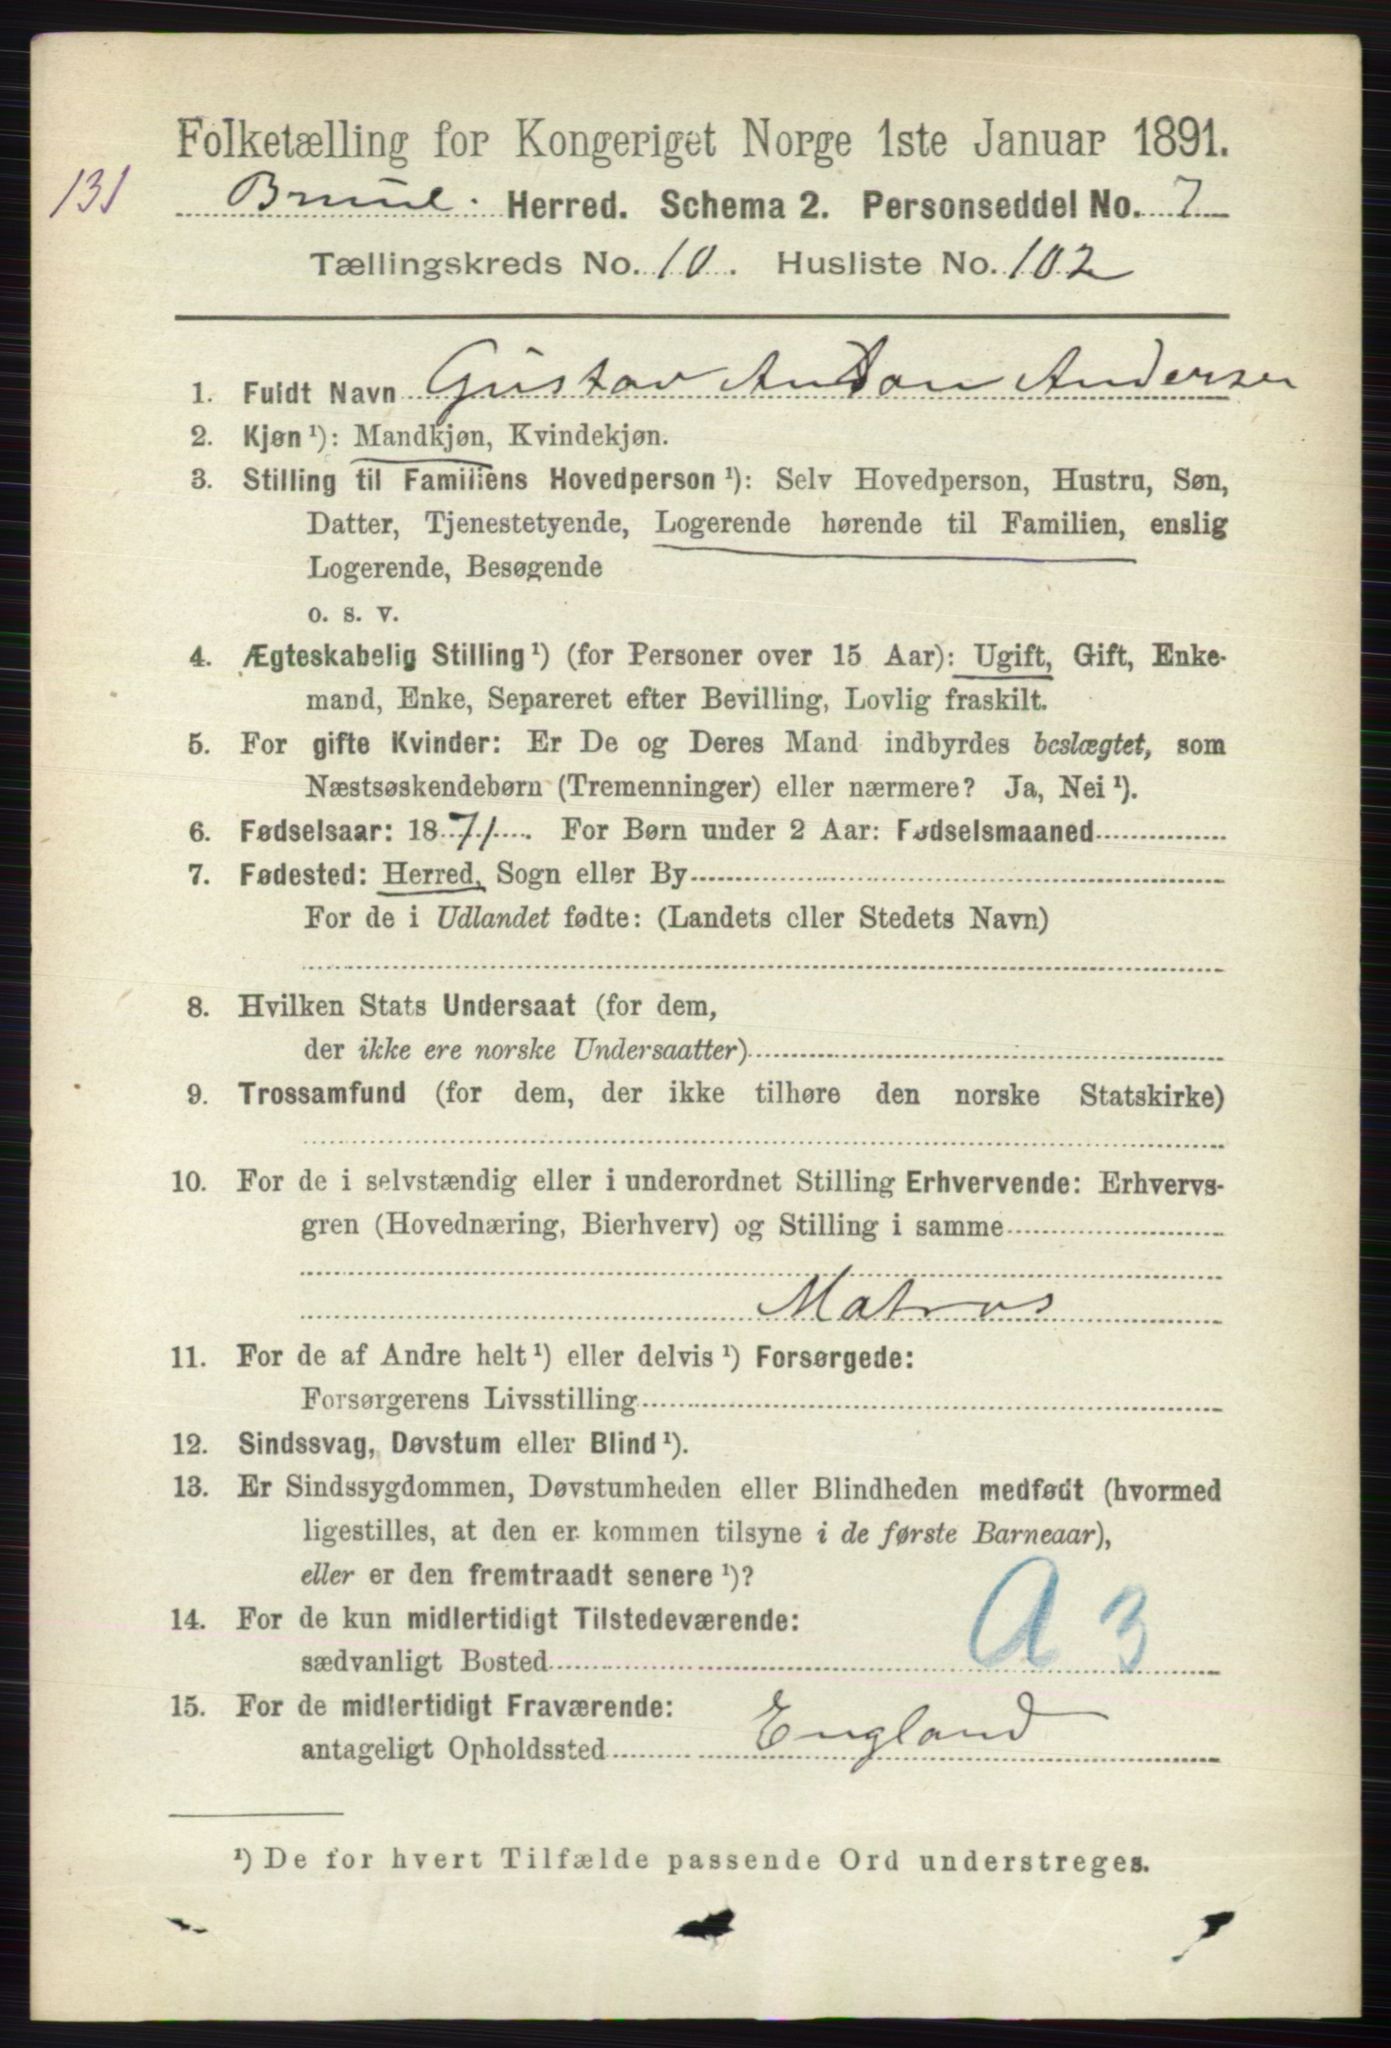 Folketælling for Kongeriget Norge 1ste Januar 1891.
131
Herred. Schema 2. Personseddel No. 7
Tællingskreds No. 10. Husliste No. 102
1. Fuldt Navn Gustav Anton Andersen
2. Kjøn ¹): Mandkjøn, Kvindekjøn.
3. Stilling til Familiens Hovedperson ¹): Selv Hovedperson, Hustru, Søn,
Datter, Tjenestetyende, Logerende hørende til Familien, enslig
Logerende, Besøgende
o. s. v.
4. Ægteskabelig Stilling ¹) (for Personer over 15 Aar): Ugift, Gift, Enke-
mand, Enke, Separeret efter Bevilling, Lovlig fraskilt.
5. For gifte Kvinder: Er De og Deres Mand indbyrdes beslægtet, som
Næstsøskendebørn (Tremenninger) eller nærmere? Ja, Nei ¹).
6. Fødselsaar: 1871. For Børn under 2 Aar: Fødselsmaaned
7. Fødested: Herred, Sogn eller By
For de i Udlandet fødte: (Landets eller Stedets Navn)
8. Hvilken Stats Undersaat (for dem,
der ikke ere norske Undersaatter)
9. Trossamfund (for dem, der ikke tilhøre den norske Statskirke)
10. For de i selvstændig eller i underordnet Stilling Erhvervende: Erhvervs-
gren (Hovednæring, Bierhverv) og Stilling i samme
Matros
11. For de af Andre helt ¹) eller delvis ¹) Forsørgede:
Forsørgerens Livsstilling
12. Sindssvag, Døvstum eller Blind ¹).
13. Er Sindssygdommen, Døvstumheden eller Blindheden medfødt (hvormed
ligestilles, at den er kommen tilsyne i de første Barneaar),
eller er den fremtraadt senere ¹)?
14. For de kun midlertidigt Tilstedeværende:
sædvanligt Bosted
A 3
15. For de midlertidigt Fraværende:
antageligt Opholdssted England
¹) De for hvert Tilfælde passende Ord understreges.